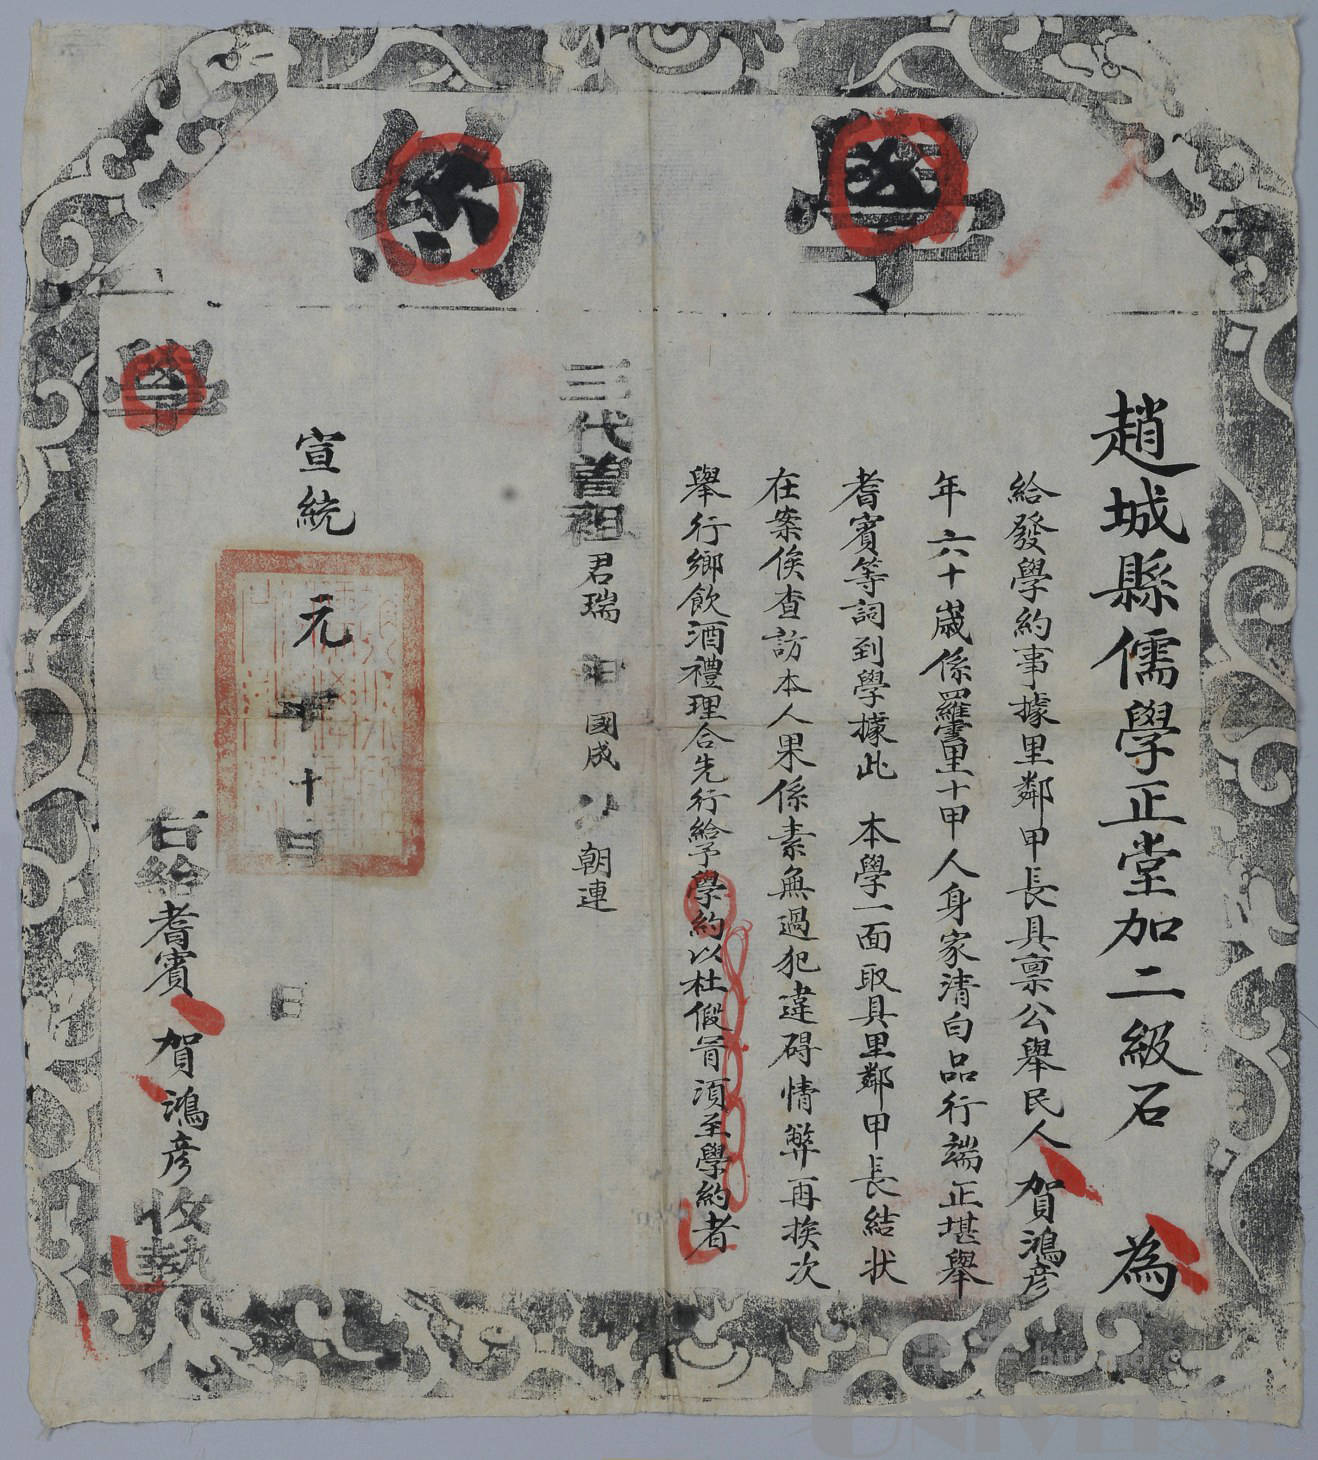 學約
趙城縣儒學正堂加二級石 為
給發學約事據里鄰甲長具禀公舉民人賀鴻彦
年六十歲係羅雲里十甲人身家清白品行端正堪舉
耆賓等詞到學據此 本學一面取具里鄰甲長結状
在案俟查訪本人果係素無過犯違碍情弊再挨次
舉行鄉飲酒禮理合先行給予學約以杜假冒須至學約者
三代曽祖君瑞 祖國成 父朝連
宣統元年十 日
日
右給耆賓 賀鴻彦收執
學